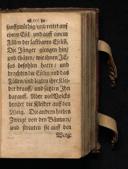 sanfftmüthig/ und reitet auff
einem Esel/ und auff einem
Füllen der lastbaren Eselin.
Die Jünger giengen hin/
und thäten/ wie ihnen JE-
sus befohlen hatte/ und
brachten die Eselin und das
Füllen/ und legten ihre Klei-
der drauff/ und setzten Ihn
darauff. Aber viel Volcks
breitet die Kleider auff den
Weg. Die andern hieben
Zweige von den Bäumen/
und streueten sie auff den
Weg/